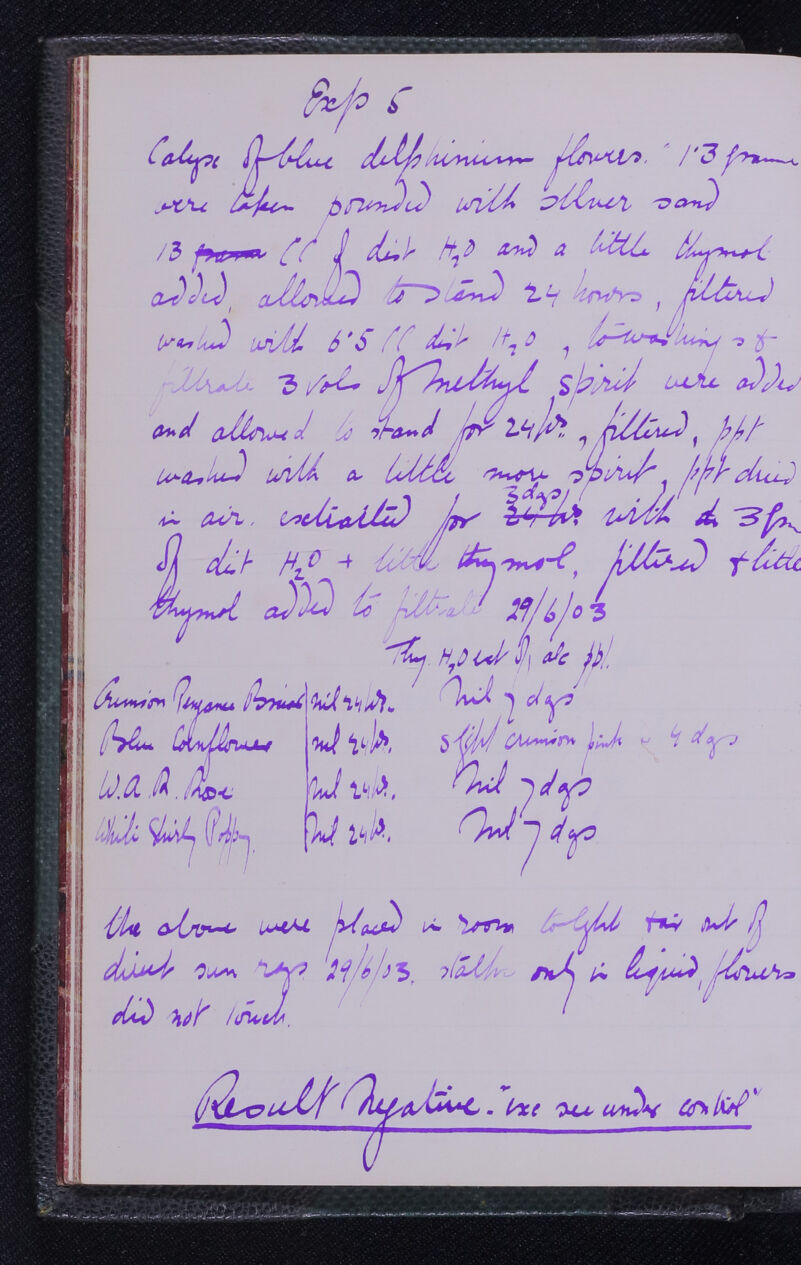 Exp 5
Calyx of blue delphinium flowers. 1·3 gramme
were taken pounded with silver sand
13 CC of dist H2O and a little thymol
added, allowed to stand 24 hours, filtered
washed with 6·5 CC dist H2O, to washings &
filtrate 3 vols of Methyl spirit were added
and allowed to stand for 24 hr., filtered, ppt
washed with a little more spirit, ppt dried
3 dys
in air. extracted for 24 hr. with 3 gm
of dist H2O + little thymol, filtered & little
thymol added to filtrate 29/6/03
Thy. H2O ext of alc ppt.
Crimson nil 24 hr. Nil 7 dys
Blue Cornflower nil 24 hr. slight crimson pink 4 dys
W.A.R. Rose Nil 24 hr. Nil 7 dys
White Shirley Poppy. Nil 24 hr. Nil 7 dys
The above were placed in room to light & air out of
direct sun rays 29/6/03. stalks only in liquid, flowers
did not touch.
Result Negative. "see under control"